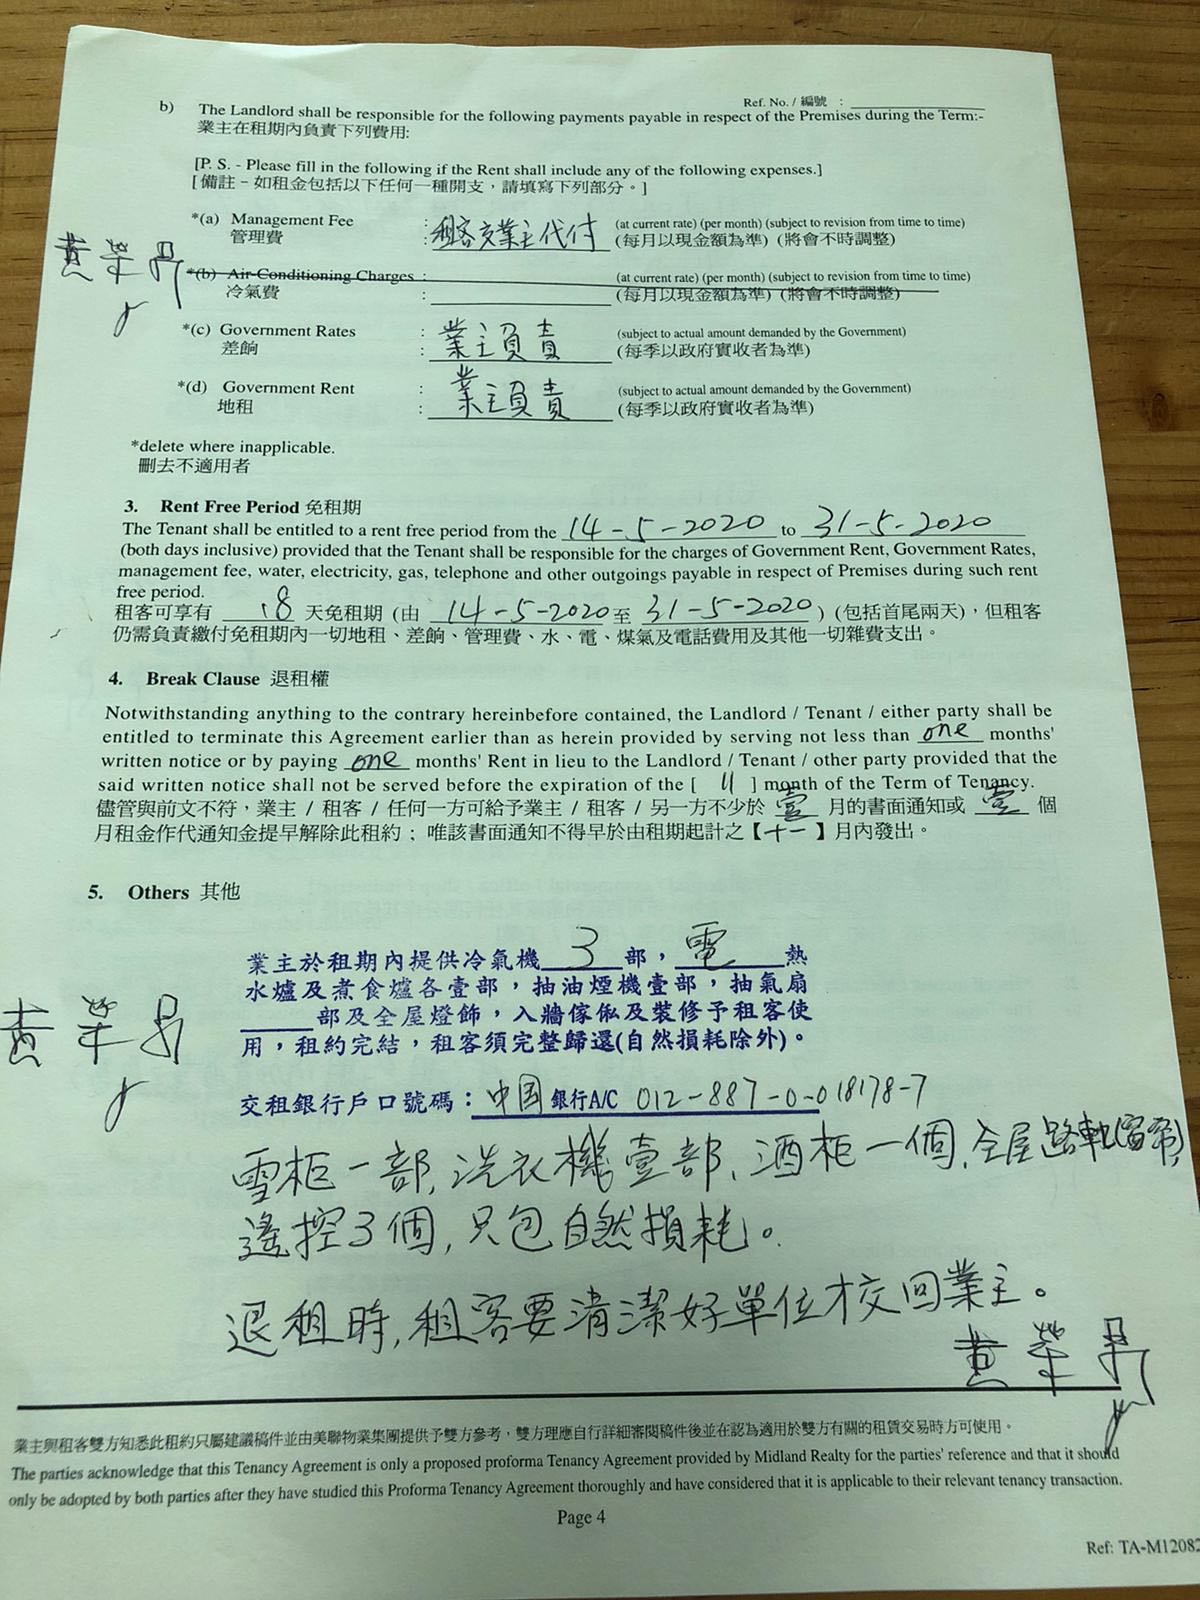 Ref. No. / 編號 :
b) The Landlord shall be responsible for the following payments payable in respect of the Premises during the Term:-
業主在租期內負責下列費用:
[P. S. - Please fill in the following if the Rent shall include any of the following expenses.]
[ 備註 - 如租金包括以下任何一種開支，請填寫下列部分。]
*(a) Management Fee : 租客交業主代付 (at current rate) (per month) (subject to revision from time to time)
管理費 : (每月以現金額為準) (將會不時調整)
黃榮
*(b) Air-Conditioning Charges : (at current rate) (per month) (subject to revision from time to time)
冷氣費 : (每月以現金額為準) (將會不時調整)
*(c) Government Rates : 業主負責 (subject to actual amount demanded by the Government)
差餉 : (每季以政府實收者為準)
*(d) Government Rent : 業主負責 (subject to actual amount demanded by the Government)
地租 : (每季以政府實收者為準)
*delete where inapplicable.
刪去不適用者
3. Rent Free Period 免租期
The Tenant shall be entitled to a rent free period from the 14-5-2020 to 31-5-2020
(both days inclusive) provided that the Tenant shall be responsible for the charges of Government Rent, Government Rates,
management fee, water, electricity, gas, telephone and other outgoings payable in respect of Premises during such rent
free period.
租客可享有 18 天免租期 (由 14-5-2020 至 31-5-2020 ) (包括首尾兩天)，但租客
仍需負責繳付免租期內一切地租、差餉、管理費、水、電、煤氣及電話費用及其他一切雜費支出。
4. Break Clause 退租權
Notwithstanding anything to the contrary hereinbefore contained, the Landlord / Tenant / either party shall be
entitled to terminate this Agreement earlier than as herein provided by serving not less than one months'
written notice or by paying one months' Rent in lieu to the Landlord / Tenant / other party provided that the
said written notice shall not be served before the expiration of the [ 11 ] month of the Term of Tenancy.
儘管與前文不符，業主 / 租客 / 任何一方可給予業主 / 租客 / 另一方不少於 壹 月的書面通知或 壹 個
月租金作代通知金提早解除此租約；唯該書面通知不得早於由租期起計之【十一】月內發出。
5. Others 其他
業主於租期內提供冷氣機 3 部，電 熱
水爐及煮食爐各壹部，抽油煙機壹部，抽氣扇
部及全屋燈飾，入牆傢俬及裝修予租客使
黃榮
用，租約完結，租客須完整歸還(自然損耗除外)。
交租銀行戶口號碼：中国 銀行A/C 012-887-0-018178-7
雪柜一部, 洗衣機壹部, 酒柜一個, 全屋路軌(窗帘),
遙控3個, 只包自然損耗。
退租時, 租客要清潔好單位才交回業主。
黃榮
業主與租客雙方知悉此租約只屬建議稿件並由美聯物業集團提供予雙方參考，雙方理應自行詳細審閱稿件後並在認為適用於雙方有關的租賃交易時方可使用。
The parties acknowledge that this Tenancy Agreement is only a proposed proforma Tenancy Agreement provided by Midland Realty for the parties' reference and that it should
only be adopted by both parties after they have studied this Proforma Tenancy Agreement thoroughly and have considered that it is applicable to their relevant tenancy transaction.
Page 4
Ref: TA-M12082